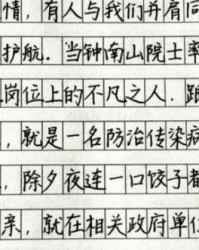 情，有人与我们并肩同
护航．当钟南山院士率
岗位上的不凡之人．跟
，就是一名防治传染病
，除夕夜连一口饺子都
亲，就在相关政府单位